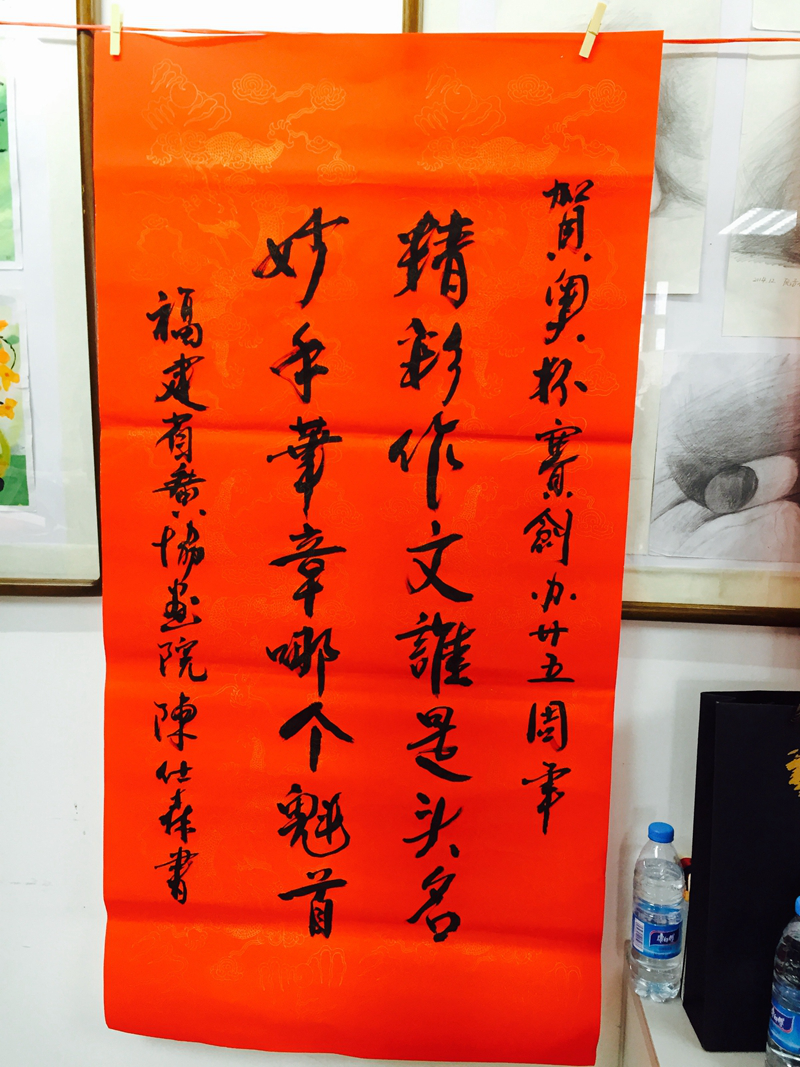 賀奥杯賽創办廿五周年
精彩作文誰是头名
妙手華章哪个魁首
福建省夤協画院陳仕森書
康师傅